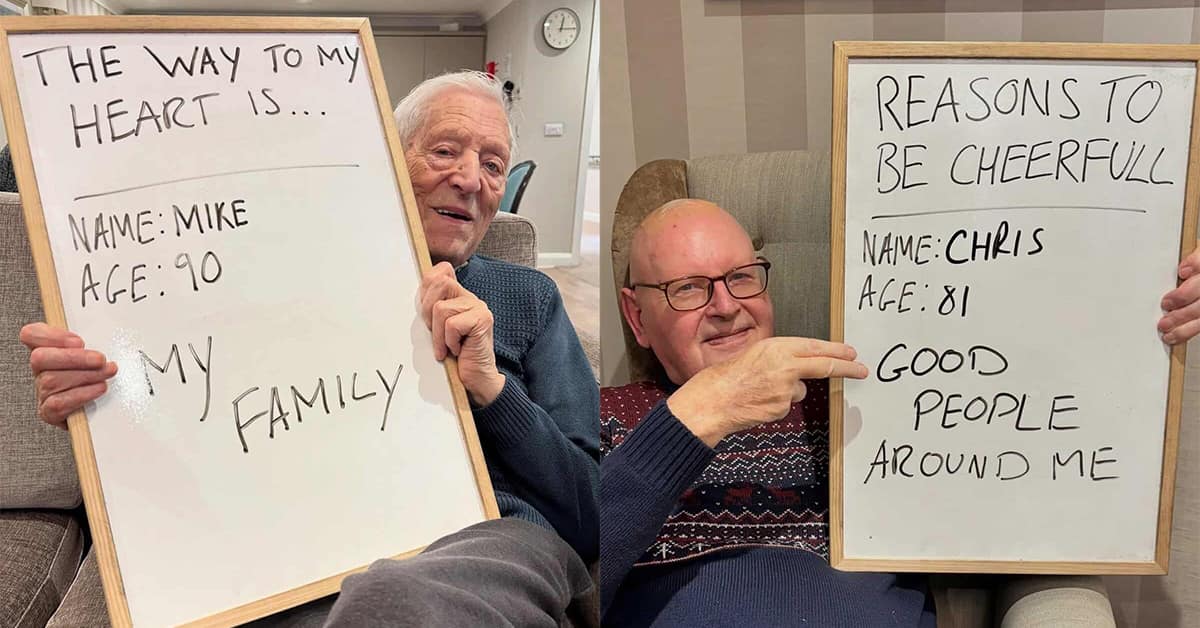 THE WAY TO MY
HEART IS...
NAME: MIKE
AGE: 90
MY
FAMILY
REASONS TO
BE CHEERFULL
NAME: CHRIS
AGE: 81
GOOD
PEOPLE
AROUND ME